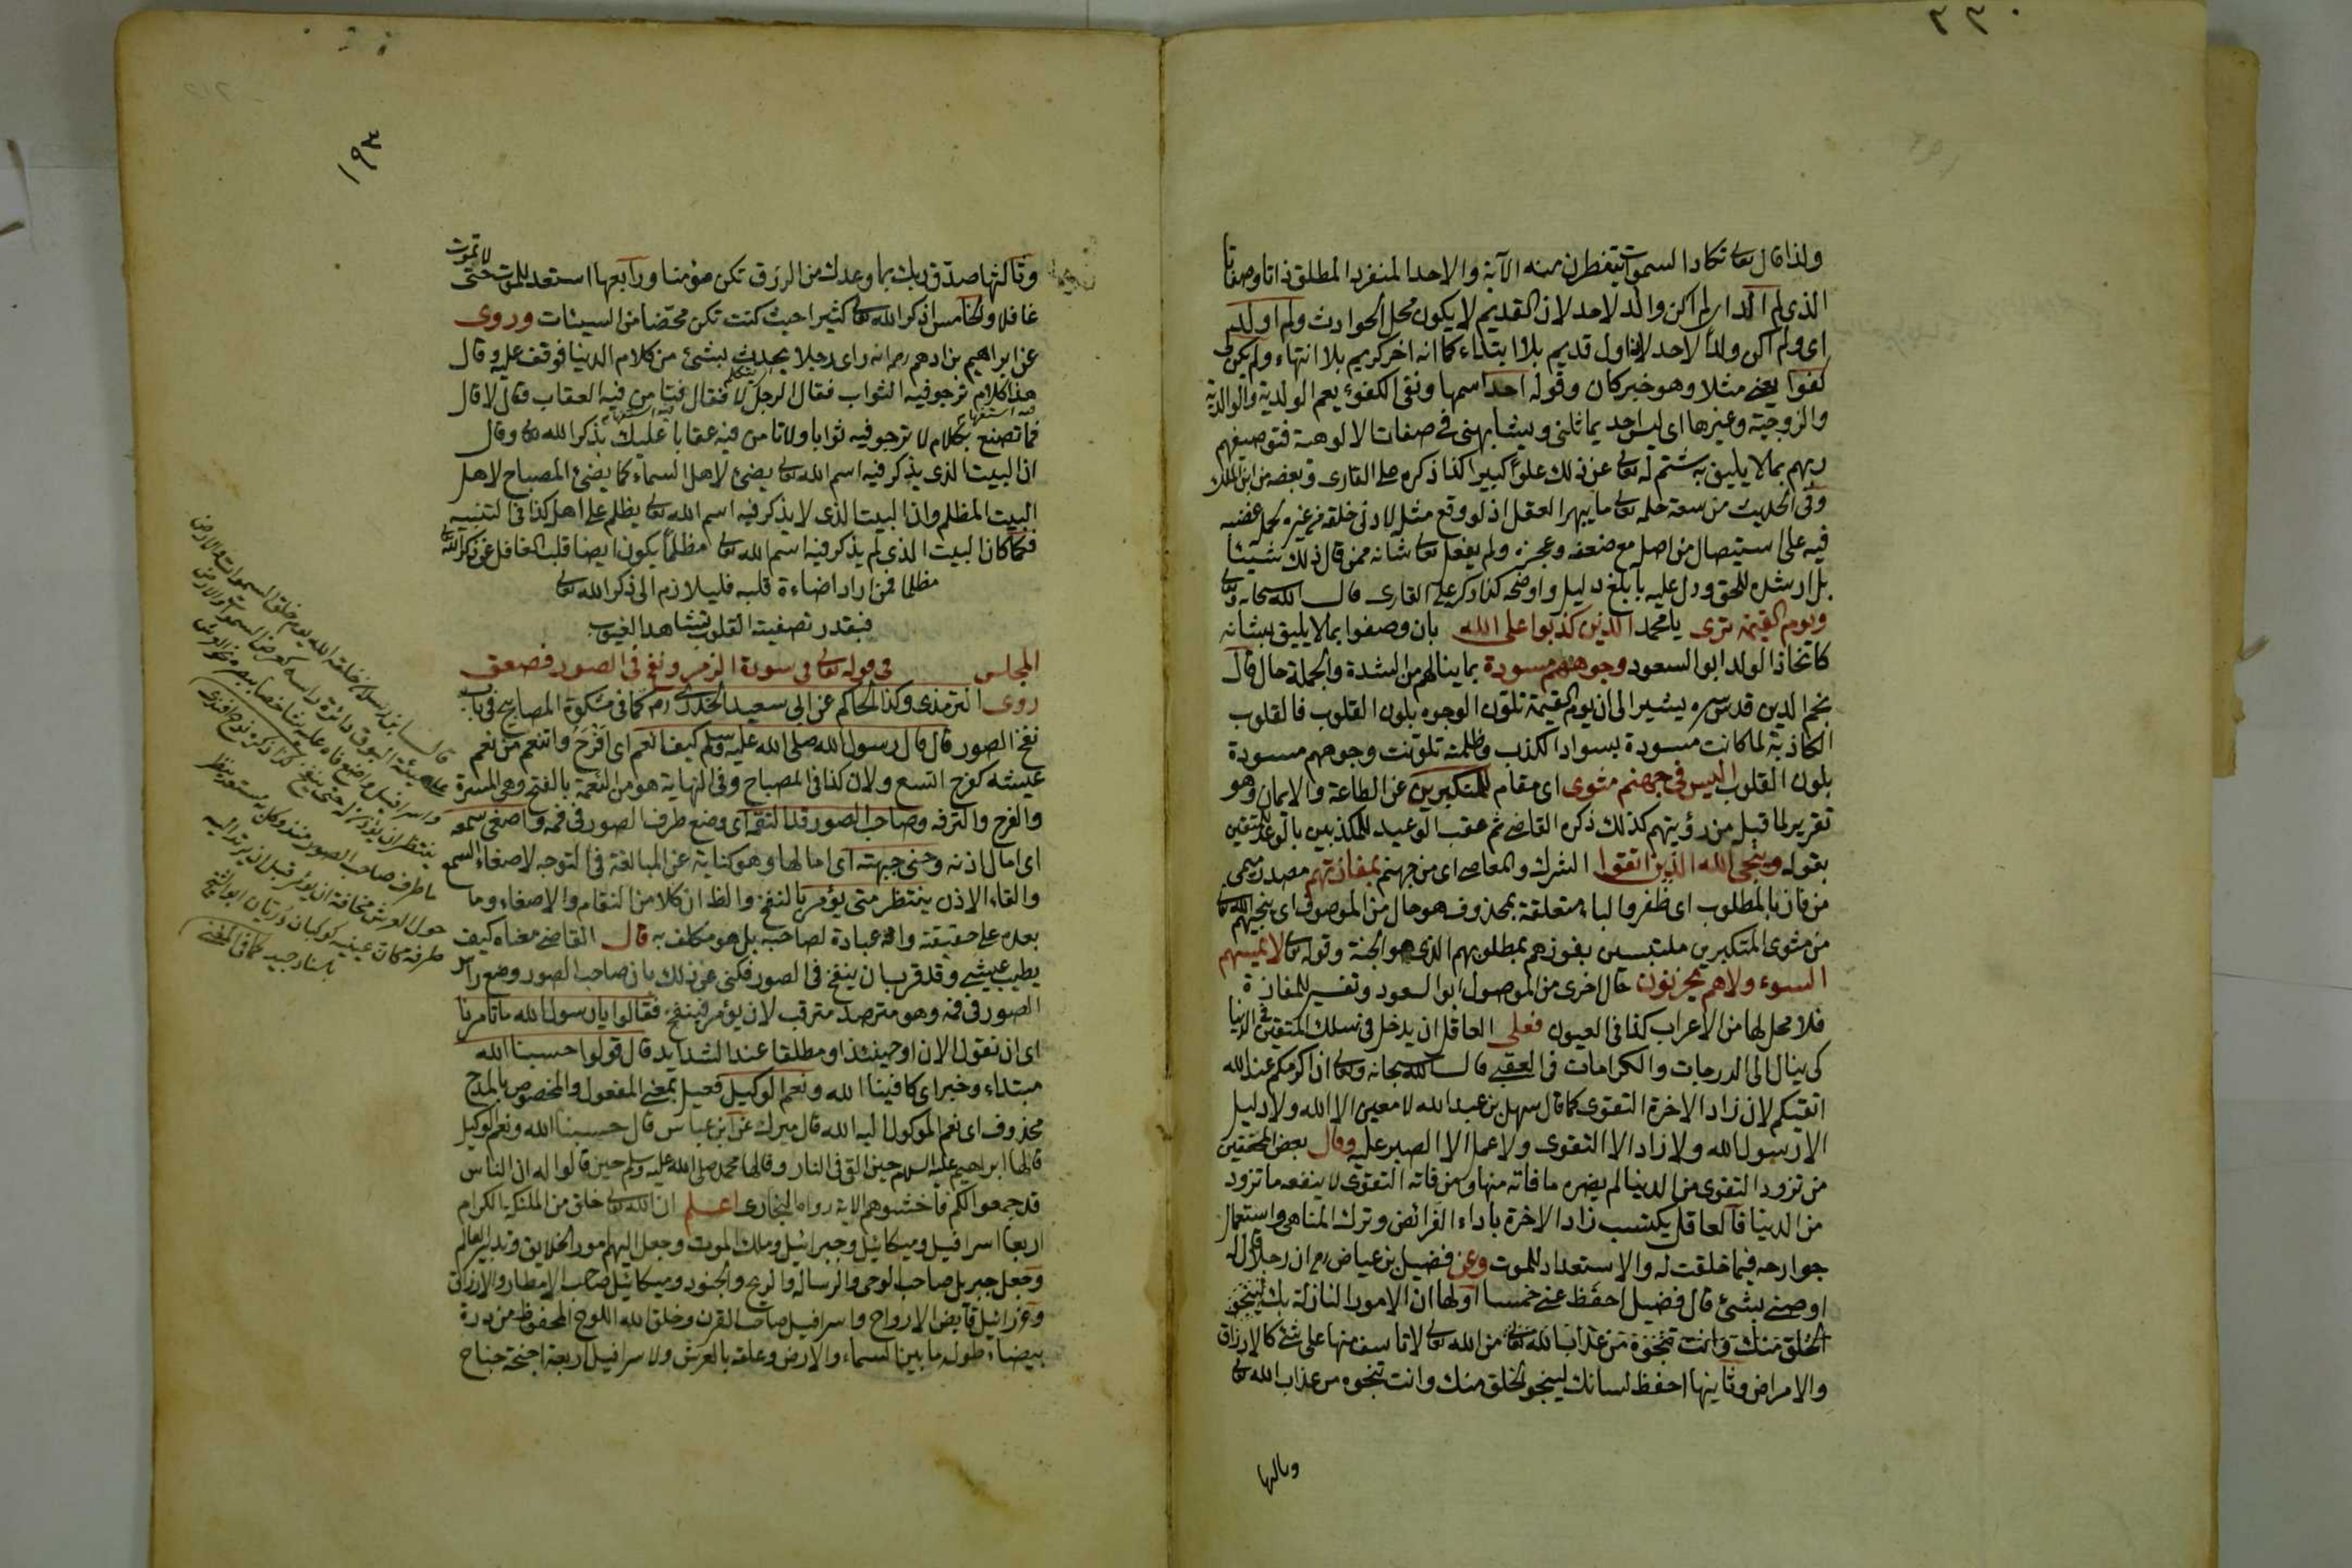 ٣٣٠
ولذا قال تعالى تكاد السموات يتفطرن منه الآية والاحد المنفرد المطلق ذاتا وصفاتا
الذى لم الد اى لم اكن والد لاحد لان القديم لا يكون محل الحوادث ولم اولد
اى ولم اكن ولدا لاحد لانه اول قديم بلا ابتداء كما انه اخر كريم بلا انتهاء ولم يكن لى
كفوا يعنى مثلا وهو خبر كان وقوله احد اسمها ونفى الكفوء يعم الولدية والوالدية
والزوجية وغيرها اى ليس احد يماثلنى ويشابهنى فى صفات الالوهية فتوصيفهم
ربهم بما لا يليق به شتم له تعالى عن ذلك علوا كبيرا كذا ذكره على القارى وبعضه من ابن الملك
وفى الحديث من سعة حلمه تعالى ما يبهر العقل اذ لو وقع مثل لادنى خلقه من غيره لحمله غضبه
فيه على استيصال من اصل مع ضعفه وعجزه ولم يفعل تعالى شانه ممن قال ذلك شيئا
بل ارشده للحق ودل عليه بابلغ دليل واوضحه كذا ذكره على القارى قال الله سبحانه وتعالى
ويوم القيمة ترى يا محمد الذين كذبوا على الله بان وصفوا بما لا يليق بشانه
كاتخاذ الولد ابو السعود وجوههم مسودة بما ينالهم من الشدة والجملة حال قال
نجم الدين قدس سره يشير الى ان يوم القيمة تلون الوجوه بلون القلوب فالقلوب
الكاذبة لما كانت مسودة بسواد الكذب وظلمته تلونت وجوههم مسودة
بلون القلوب اليس فى جهنم مثوى اى مقام للمتكبرين عن الطاعة والايمان وهو
تقرير لما قبل من رؤيتهم كذلك ذكره القاضى ثم عقب الوعيد للمكذبين بالوعد للمتقين
بقوله وينجى الله الذين اتقوا الشرك والمعاصى اى من جهنم بمفازتهم مصدر ميمى
من فاز بالمطلوب اى ظفر والباء متعلقة بمحذوف هو حال من الموصول اى ينجيهم الله تعالى
من مثوى المتكبرين ملتبسين بفوزهم بمطلوبهم الذى هو الجنة وقوله تعالى لا يمسهم
السوء ولا هم يحزنون حال اخرى من الموصول ابو السعود وتفسير للمفازة
فلا محل لها من الاعراب كذا فى العيون فعلى العاقل ان يدخل فى سلك المتقين فى الدنيا
كى ينال الى الدرجات والكرامات فى العقبى قال الله سبحانه وتعالى ان اكرمكم عند الله
اتقيكم لان زاد الاخرة التقوى كما قال سهل بن عبد الله لا معين الا الله ولا دليل
الا رسول الله ولا زاد الا التقوى ولا عمل الا الصبر عليه وقال بعض المحققين
من تزود التقوى من الدنيا لم يضره ما فاته منها ومن فاته التقوى لا ينفعه ما تزود
من الدنيا فالعاقل يكتسب زاد الاخرة باداء الفرائض وترك المناهى واستعمال
جوارحه فيما خلقت له والاستعداد للموت وعن فضيل بن عياض رح ان رجلا قال له
اوصنى بشئ قال فضيل احفظ عنى خمسا اولها ان الامور النازلة بك لينجو
الخلق منك وانت تنجو من عذاب الله تعالى من الله تعالى لا تاسف منها على شئ كالارزاق
والامراض وثانيها احفظ لسانك لينجو الخلق منك وانت تنجو من عذاب الله تعالى
وثالثها
١٩٣
وثالثها صدق ربك بما وعدك من الرزق تكن مؤمنا ورابعها استعد للموت حتى لا تموت
غافلا والخامس اذكر الله تعالى كثيرا حيث كنت تكن محتضا من السيئات وروى
عن ابراهيم بن ادهم رح انه راى رجلا يحدث بشئ من كلام الدنيا فوقف عليه وقال
هذا كلام ترجو فيه الثواب فقال الرجل لا فقال فتامن فيه العقاب قال لا قال
فما تصنع بكلام لا ترجو فيه ثوابا ولا تامن فيه عقابا عليك بذكر الله تعالى وقال
ان البيت الذى يذكر فيه اسم الله تعالى يضئ لاهل السماء كما يضئ المصباح لاهل
البيت المظلم وان البيت الذى لا يذكر فيه اسم الله تعالى يظلم على اهله كذا فى التنبيه
فكما كان البيت الذى لم يذكر فيه اسم الله تعالى مظلما يكون ايضا قلب الغافل عن ذكر الله تعالى
مظلما فمن اراد اضاءة قلبه فليلازم الى ذكر الله تعالى
فبقدر تصفية القلوب تشاهد الغيوب
المجلس فى قوله تعالى فى سورة الزمر ونفخ فى الصور فصعق
روى الترمذى وكذا الحاكم عن ابى سعيد الخدرى رضى كما فى مشكوة المصابيح فى باب
نفخ الصور قال قال رسول الله صلى الله عليه وسلم كيف انعم اى افرح واتنعم من نعم
عيشه كفرح اتسع ولان كذا فى المصباح وفى النهاية هو من النعمة بالفتح وهى المسرة
والفرح والترفه وصاحب الصور قد التقمه اى وضع طرف الصور فى فمه واصغى سمعه
اى امال اذنه وحنى جبهته اى امالها وهو كناية عن المبالغة فى التوجه لاصغاء السمع
والقاء الاذن ينتظر متى يؤمر بالنفخ والظ ان كلا من التقام والاصغاء وما
بعده على حقيقته وانه عبادة لصاحبه بل هو مكلف به قال القاضى معناه كيف
يطيب عيشى وقد قرب ان ينفخ فى الصور فكنى عن ذلك بان صاحب الصور وضع راس
الصور فى فمه وهو مترصد مترقب لان يؤمر فينفخ فقالوا يا رسول الله ما تامرنا
اى ان نقول الان او حينئذ او مطلقا عند الشدايد قال قولوا حسبنا الله
مبتداء وخبر اى كافينا الله ونعم الوكيل فعيل بمعنى المفعول والمخصوص بالمدح
محذوف اى نعم الموكول اليه الله قال ميرك عن ابن عباس قال حسبنا الله ونعم الوكيل
قالها ابراهيم عليه السلام حين القى فى النار وقالها محمد صلى الله عليه وسلم حين قالوا له ان الناس
قد جمعوا لكم فاخشوهم الاية رواه البخارى اعلم ان الله تعالى خلق من الملئكة الكرام
اربعا اسرافيل وميكائيل وجبرائيل وملك الموت وجعل اليهم امور الخلايق وتدبير العالم
وجعل جبريل صاحب الوحى والرسالة والريح والجنود وميكائيل صاحب الامطار والارزاق
وعزرائيل قابض الارواح واسرافيل صاحب القرن وخلق الله اللوح المحفوظ من درة
بيضاء طوله ما بين السماء والارض وعلقه بالعرش ولاسرافيل اربعة اجنحة جناح
خلقه الله يوم خلق السموات والارض
على هيئة البوق دائرة راسه كعرض السموات والارض
واسرافيل واضع فاه عليه شاخصا ببصره نحو العرش
ينتظر ان يؤذن له حتى ينفخ
ما طرف صاحب الصور منذ وكل به مستعد ينظر
حول العرش مخافة ان يؤمر قبل ان يرتد اليه
طرفه كان عينيه كوكبان دريان